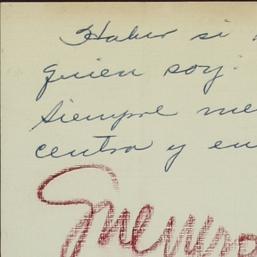 Haber si
quien soy.
Siempre me
centra y en